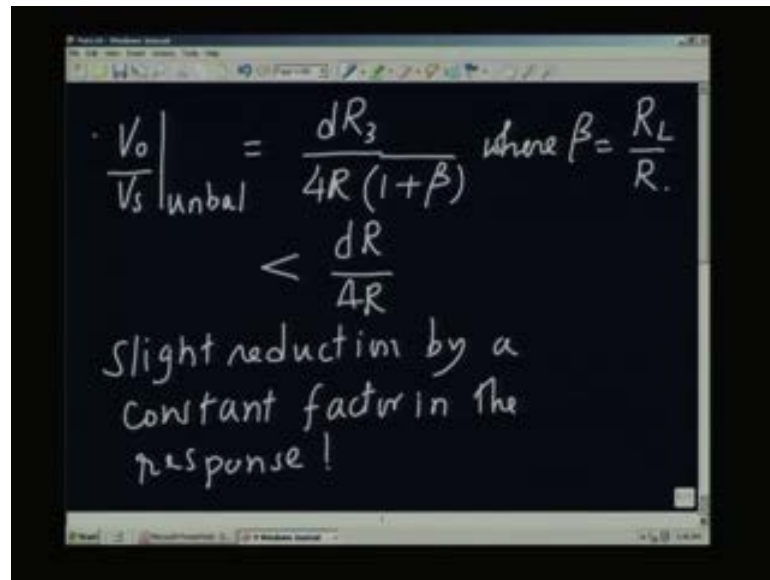 Vo/Vs | unbal = dR₃ / 4R(1+β) where β = R_L / R.
< dR / 4R
Slight reduction by a
constant factor in the
response !